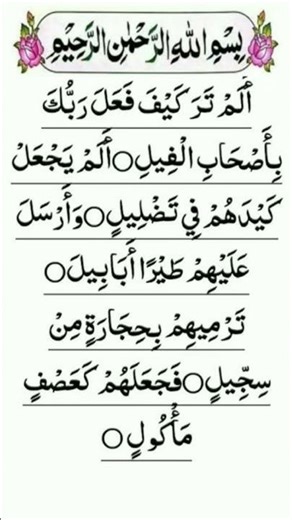 بِسْمِ اللهِ الرَّحْمٰنِ الرَّحِيْمِ
أَلَمْ تَرَ كَيْفَ فَعَلَ رَبُّكَ
بِأَصْحَابِ الْفِيلِ○أَلَمْ يَجْعَلْ
كَيْدَهُمْ فِي تَضْلِيلٍ○وَأَرْسَلَ
عَلَيْهِمْ طَيْرًا أَبَابِيلَ○
تَرْمِيهِمْ بِحِجَارَةٍ مِنْ
سِجِّيلٍ○فَجَعَلَهُمْ كَعَصْفٍ
مَأْكُولٍ○